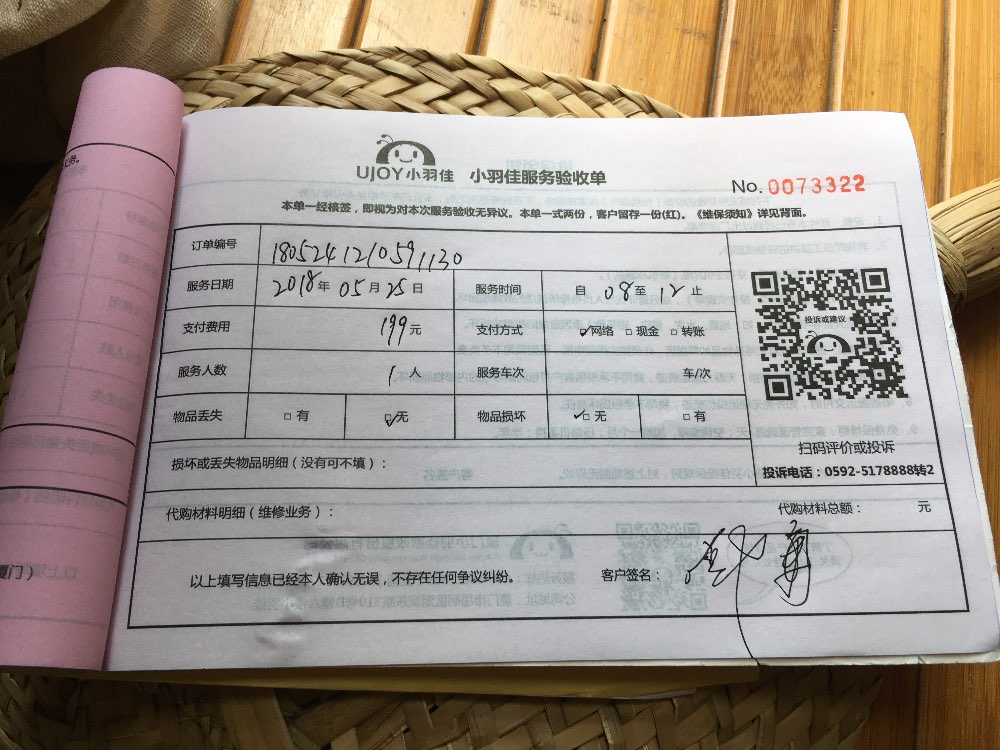 UJOY小羽佳 小羽佳服务验收单
No. 0073322
本单一经核签，即视为对本次服务验收无异议。本单一式两份，客户留存一份(红)。《维保须知》详见背面。
订单编号 1805241210591130
服务日期 2018年05月25日 服务时间 自08至12止
支付费用 199元 支付方式 ☑网络 □现金 □转账
服务人数 1人 服务车次 车/次
物品丢失 □有 ☑无 物品损坏 ☑无 □有
投诉或建议
扫码评价或投诉
投诉电话：0592-5178888转2
损坏或丢失物品明细（没有可不填）：
代购材料明细（维修业务）： 代购材料总额： 元
以上填写信息已经本人确认无误，不存在任何争议纠纷。 客户签名：
厦门）